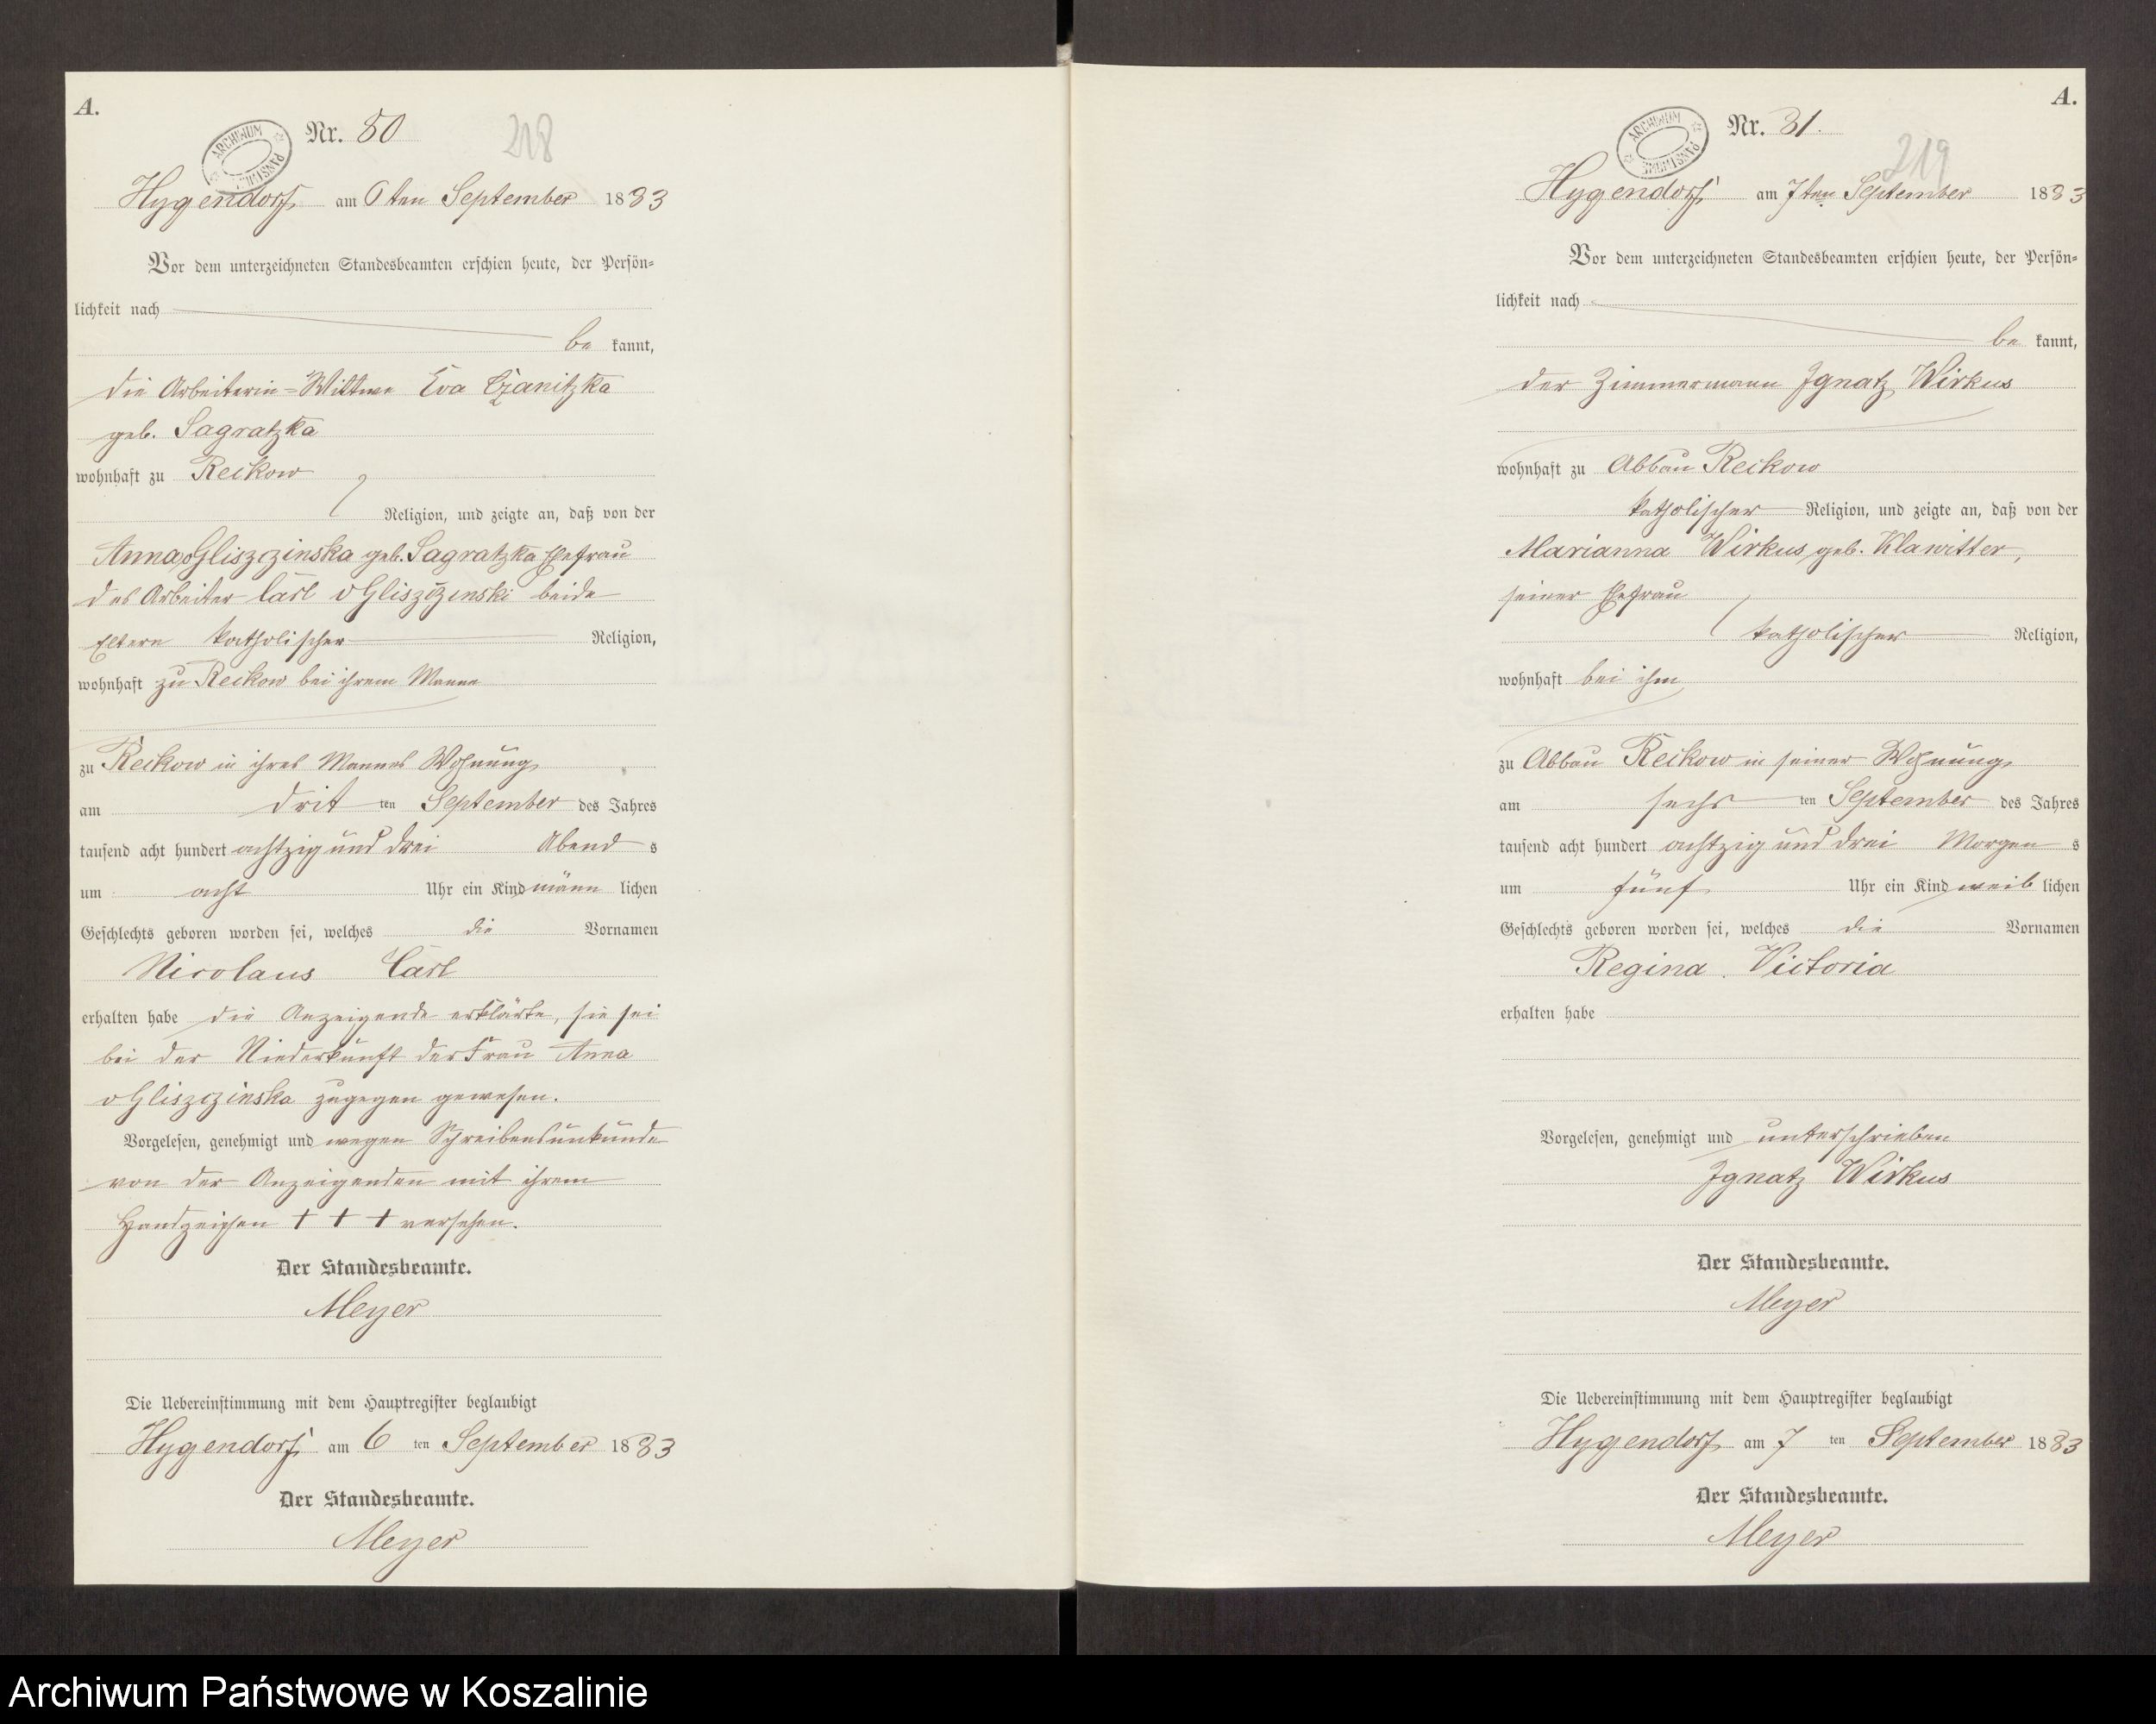 A.
Nr. 80
218
ARCHIWUM PAŃSTWOWE
Hygendorf am 6ten September 1883
Vor dem unterzeichneten Standesbeamten erschien heute, der Persön=
lichkeit nach
be kannt,
die Arbeiterin=Wittwe Eva Czanitzka
geb. Sagratzka
wohnhaft zu Reckow
Religion, und zeigte an, daß von der
Anna v Gliszczinska geb. Sagratzka Ehefrau
des Arbeiter Carl v Gliszczinski beide
Eltern katholischer Religion,
wohnhaft zu Reckow bei ihrem Manne
zu Reckow in ihres Mannes Wohnung
am drit ten September des Jahres
tausend acht hundert achtzig und drei Abend s
um acht Uhr ein Kind männ lichen
Geschlechts geboren worden sei, welches die Vornamen
Nicolaus Carl
erhalten habe die Anzeigende erklärte, sie sei
bei der Niederkunft der Frau Anna
v Gliszczinska zugegen gewesen.
Vorgelesen, genehmigt und wegen Schreibensunkunde
von der Anzeigenden mit ihrem
Handzeichen + + + versehen.
Der Standesbeamte.
Meyer
Die Uebereinstimmung mit dem Hauptregister beglaubigt
Hygendorf am 6 ten September 1883
Der Standesbeamte.
Meyer
A.
Nr. 81.
219
ARCHIWUM PAŃSTWOWE
Hygendorf am 7ten September 1883
Vor dem unterzeichneten Standesbeamten erschien heute, der Persön=
lichkeit nach
be kannt,
der Zimmermann Ignatz Wirkus
wohnhaft zu Abbau Reckow
katholischer Religion, und zeigte an, daß von der
Marianna Wirkus geb. Klawitter,
seiner Ehefrau
katholischer Religion,
wohnhaft bei ihm
zu Abbau Reckow in seiner Wohnung
am sechs ten September des Jahres
tausend acht hundert achtzig und drei Morgen s
um fünf Uhr ein Kind weib lichen
Geschlechts geboren worden sei, welches die Vornamen
Regina. Victoria
erhalten habe
Vorgelesen, genehmigt und unterschrieben
Ignatz Wirkus
Der Standesbeamte.
Meyer
Die Uebereinstimmung mit dem Hauptregister beglaubigt
Hygendorf am 7 ten September 1883
Der Standesbeamte.
Meyer
Archiwum Państwowe w Koszalinie